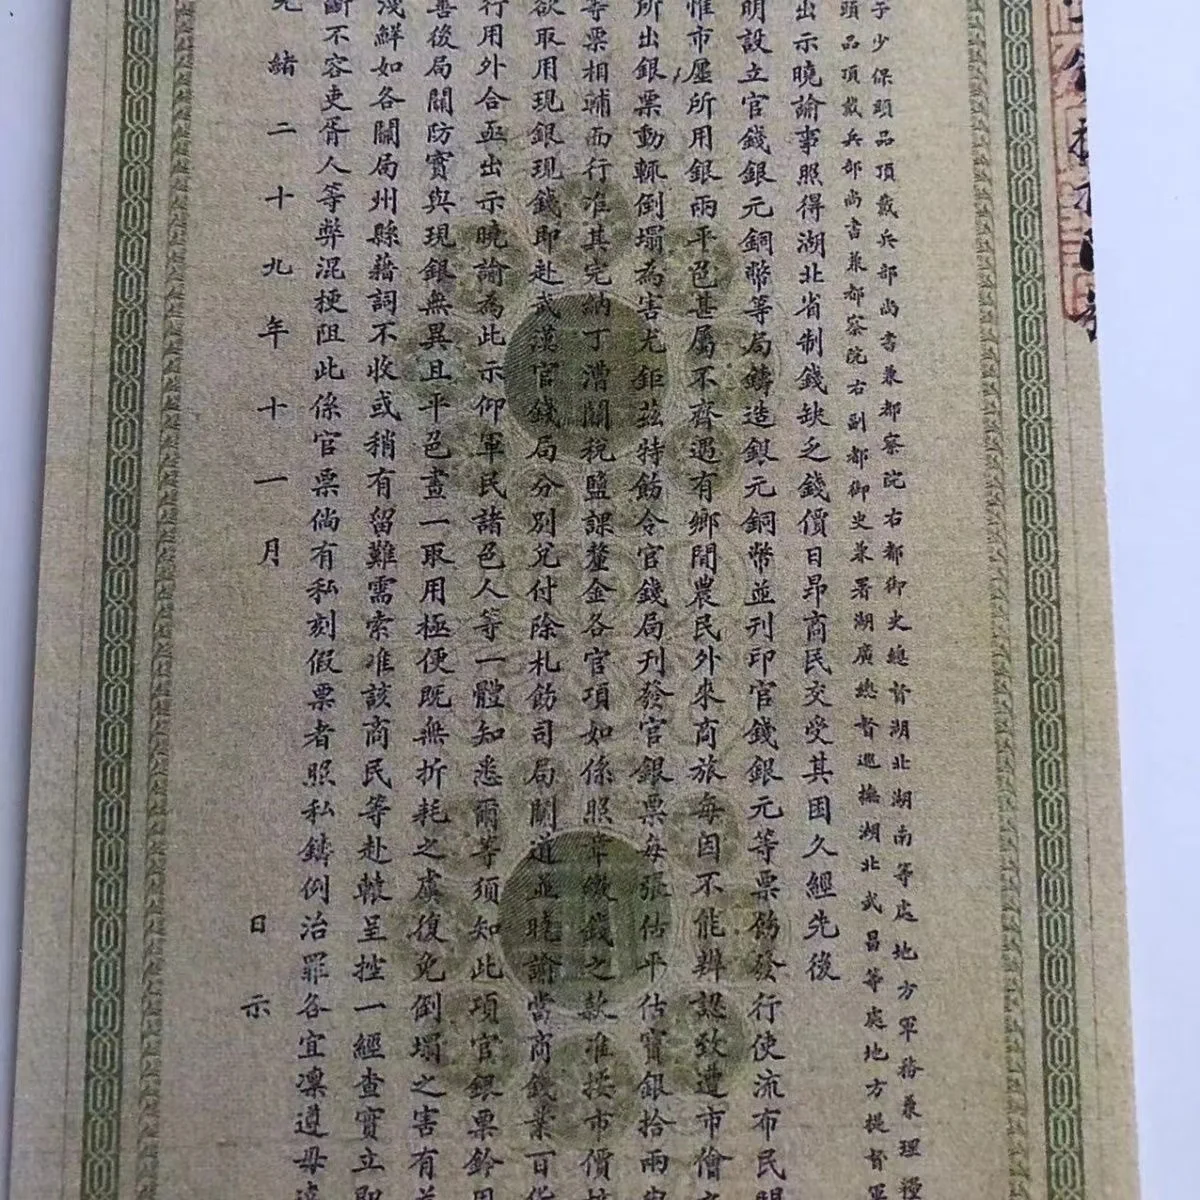 子少保頭品頂戴兵部尚書兼都察院右都御史總督湖北湖南等處地方軍務兼理糧
頭品頂戴兵部尚書兼都察院右副都御史兼署湖廣總督巡撫湖北武昌等處地方提督軍
出示曉諭事照得湖北省制錢缺乏錢價日昂商民交受其困久經先後
明設立官錢銀元銅幣等局鑄造銀元銅幣並刊印官錢銀元等票飭發行使流布民間
惟市廛所用銀兩平色甚屬不齊遇有鄉閒農民外來商旅每因不能辨認致遭市儈
所出銀票動輒倒塌為害尤鉅茲特飭令官錢局刊發官銀票每張估平估寶銀拾兩
等票相輔而行准其完納丁漕關稅鹽課釐金各官項如係照章繳錢之款准按市價
欲取用現銀現錢即赴武漢官錢局分別兌付除札飭司局關道並曉諭當商錢業百
行用外合亟出示曉諭為此示仰軍民諸色人等一體知悉爾等須知此項官銀票鈐用
善後局關防實與現銀無異且平色畫一取用極便既無折耗之虞復免倒塌之害有
淺鮮如各關局州縣藉詞不收或稍有留難需索准該商民等赴轅呈控一經查實立即
斷不容吏胥人等弊混梗阻此係官票倘有私刻假票者照私鑄例治罪各宜凜遵毋違
光緒二十九年十一月 日示